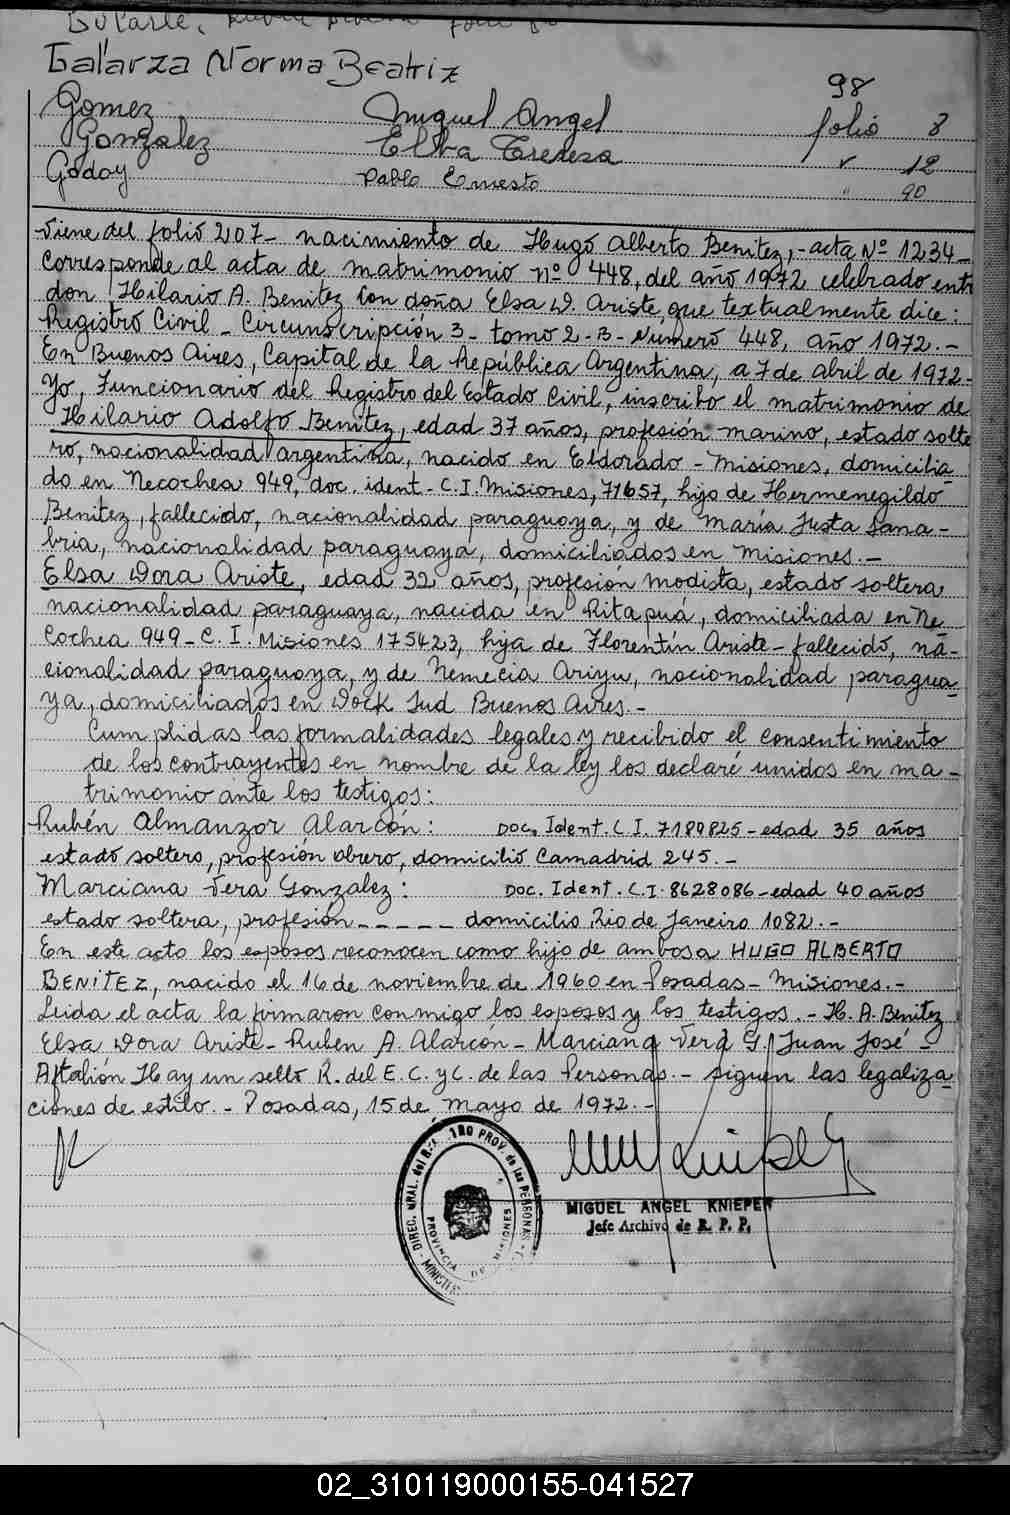 Galarza Norma Beatriz
98
Gomez Miguel Angel folio 8
Gonzalez Elba Teresa " 12
Godoy Pablo Ernesto " 90
Viene del folio 207- nacimiento de Hugo Alberto Benitez,- acta Nº 1234-
Corresponde al acta de matrimonio nº 448, del año 1972 celebrado entre
don Hilario A. Benitez con doña Elsa D. Ariste, que textualmente dice:
Registro Civil - Circunscripción 3 - tomo 2-B- Número 448, año 1972.-
En Buenos Aires, Capital de la República Argentina, a 7 de abril de 1972-
Yo, Funcionario del Registro del Estado Civil, inscribo el matrimonio de
Hilario Adolfo Benitez, edad 37 años, profesión marino, estado solte
ro, nacionalidad argentina, nacido en Eldorado - Misiones, domicilia
do en Necochea 949, doc. ident- C.I. Misiones, 71657, hijo de Hermenegildo
Benitez, fallecido, nacionalidad paraguaya, y de María Justa Sana-
bria, nacionalidad paraguaya, domiciliados en Misiones.-
Elsa Dora Ariste, edad 32 años, profesión modista, estado soltera
nacionalidad paraguaya, nacida en Ritapuá, domiciliada en Ne-
cochea 949- C. I. Misiones 175423, hija de Florentín Ariste- fallecido, na-
cionalidad paraguaya, y de Nemecia Ariyu, nacionalidad paragua-
ya, domiciliados en Dock Sud Buenos Aires.-
Cumplidas las formalidades legales y recibido el consentimiento
de los contrayentes en nombre de la ley los declaré unidos en ma-
trimonio ante los testigos:
Rubén Almanzor Alarcón: Doc. Ident. C.I. 7189825- edad 35 años
estado soltero, profesión obrero, domicilio Camadrid 245.-
Marciana Vera Gonzalez: Doc. Ident. C.I. 8628086- edad 40 años
estado soltera, profesión - - - - - domicilio Rio de Janeiro 1082.-
En este acto los esposos reconocen como hijo de ambosa HUGO ALBERTO
BENITEZ, nacido el 16 de noviembre de 1960 en Posadas- Misiones.-
Leida el acta la firmaron conmigo los esposos y los testigos.- H. A. Benitez
Elsa Dora Ariste- Ruben A. Alarcón- Marciana Vera G. Juan José-
Aftalión Hay un sello R. del E. C. y C. de las Personas.- siguen las legaliza-
ciones de estilo.- Posadas, 15 de mayo de 1972.-
DIREC. GRAL. del PROV. de las PERSONAS
PROVINCIA DE MISIONES
MIGUEL ANGEL KNIEPER
Jefe Archivo de R. P. P.
02_310119000155-041527